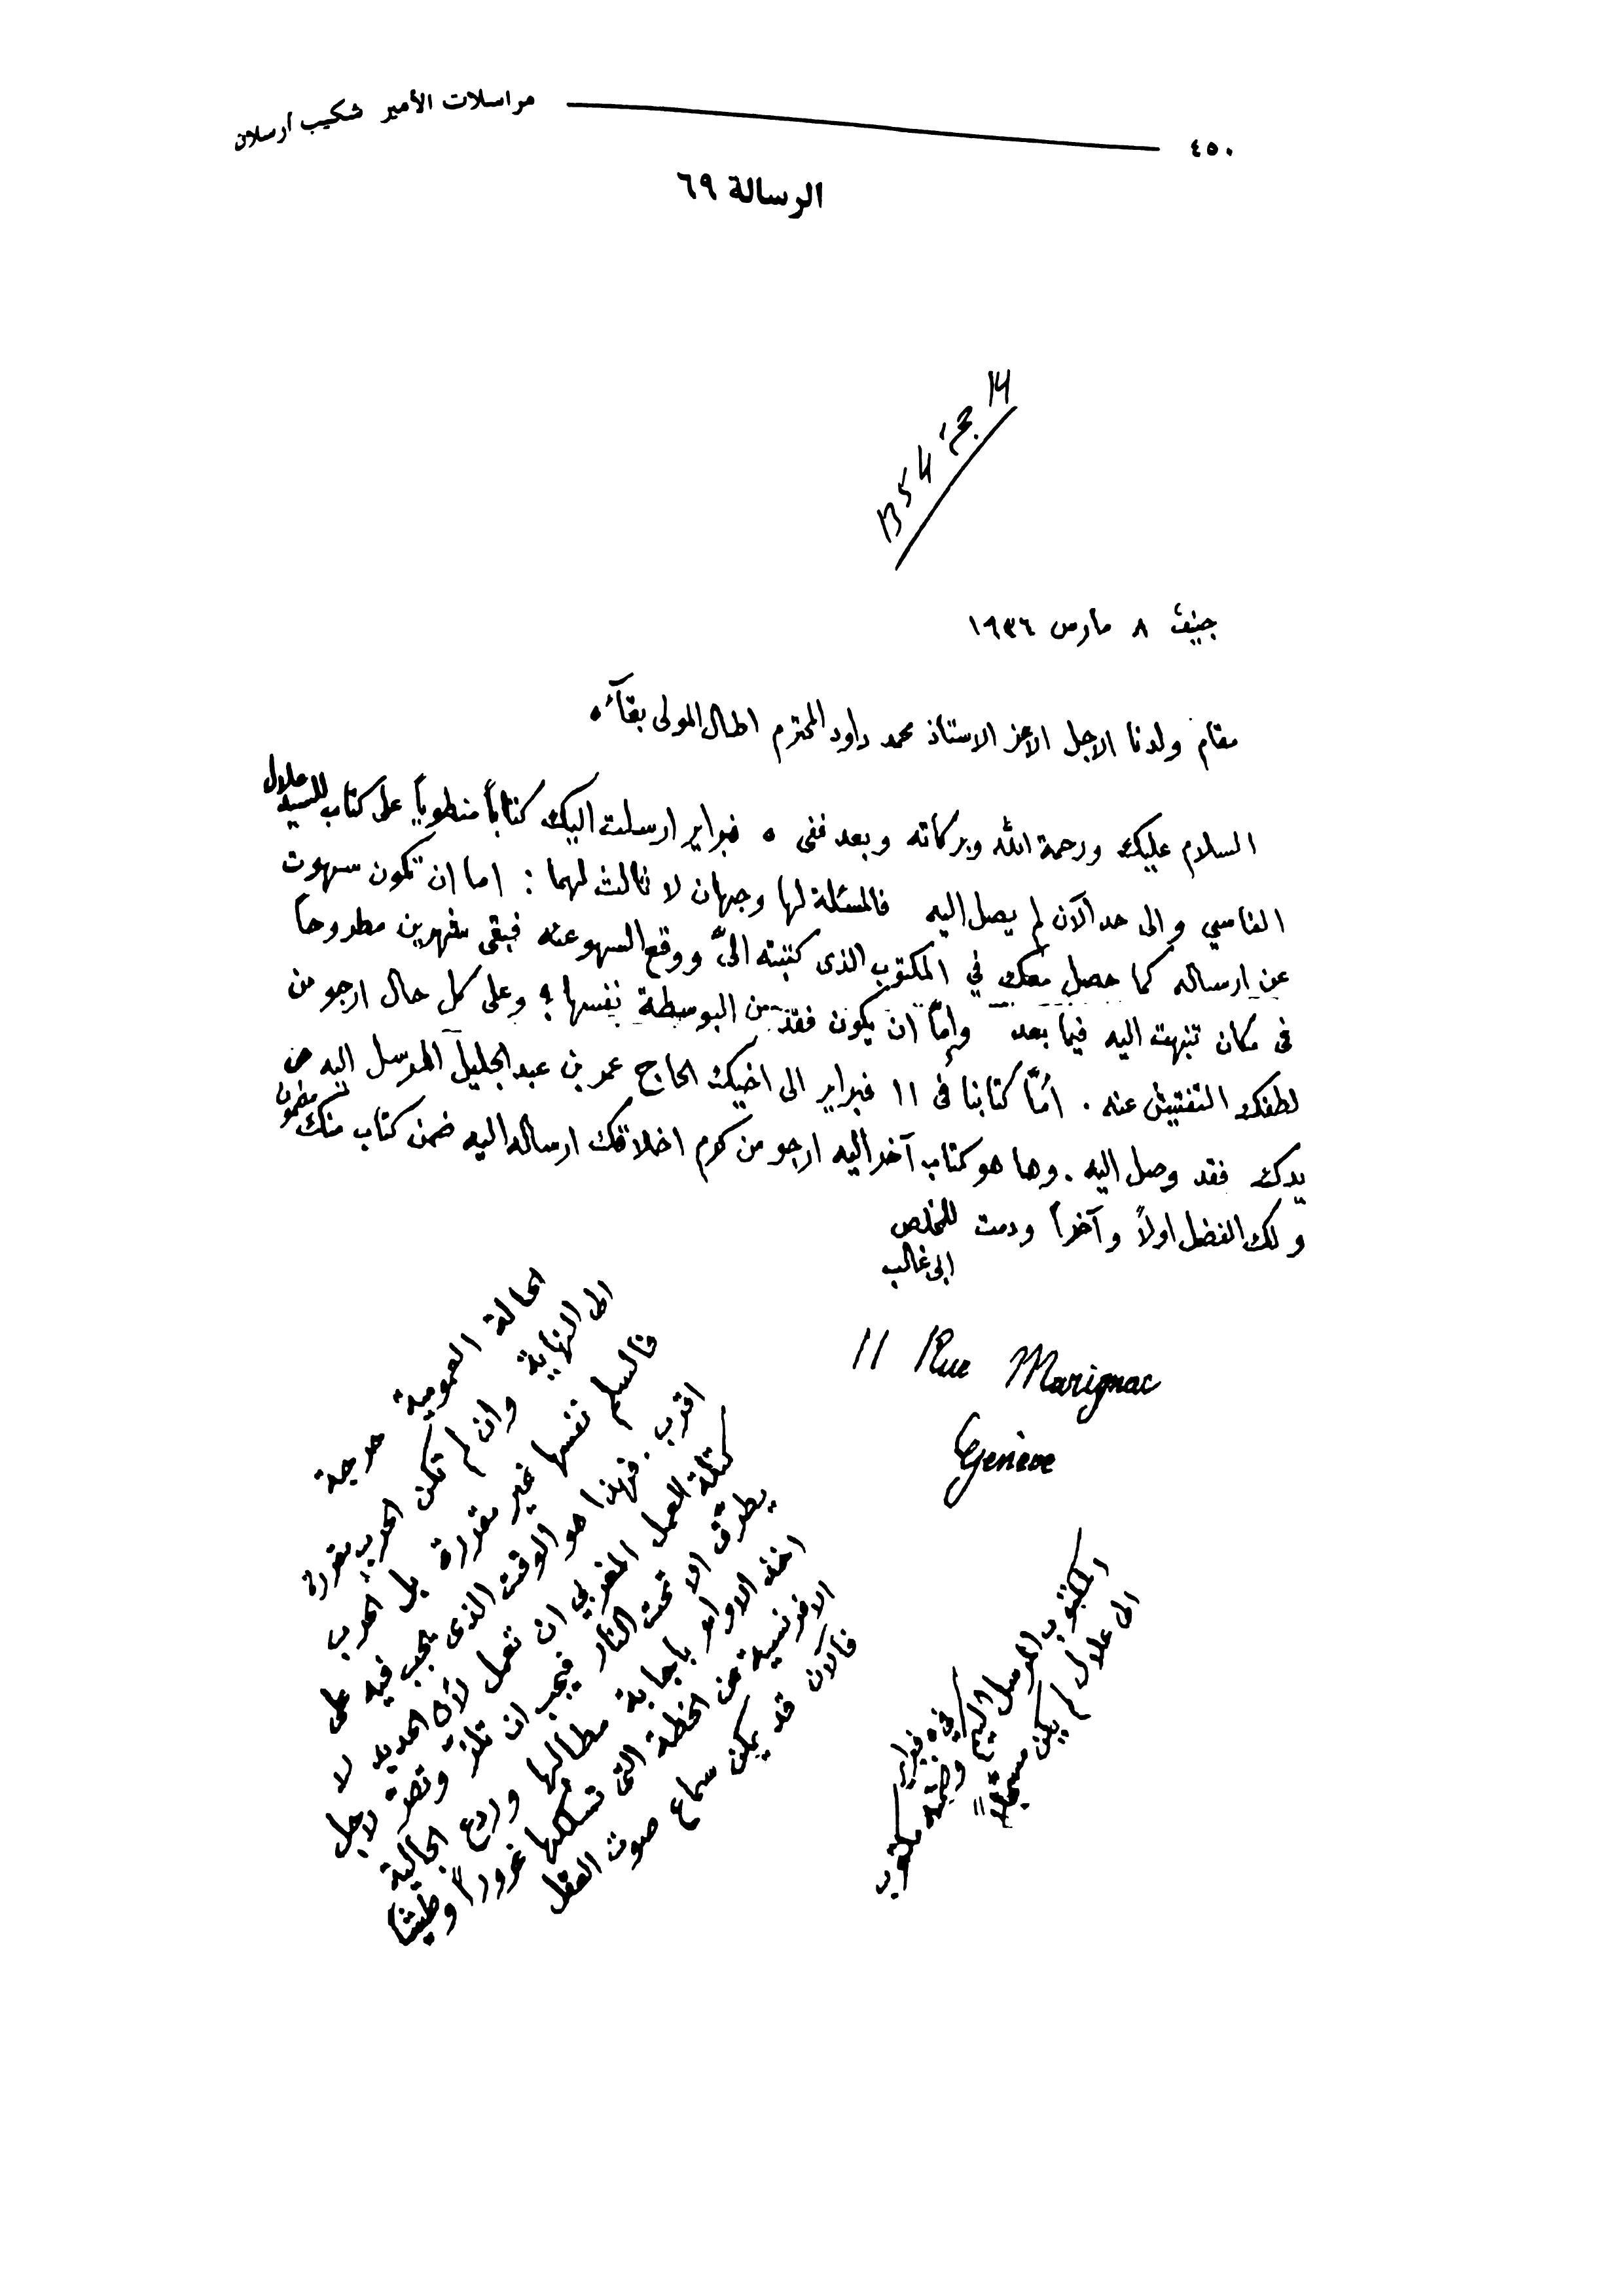 مراسلات الأمير شكيب أرسلان
٤٥٠
الرسالة ٦٩
14 حجة 1354
جنيف ٨ مارس ١٩٣٦
مقام ولدنا الاجل الاعز الاستاذ محمد داود المحترم اطال المولى بقآءه
السلام عليك ورحمة الله وبركاته وبعد ففى ٥ فبراير ارسلت اليك كتاباً منطوياً على كتاب للسيد علال
الفاسي والى حد الآن لم يصل اليه فالمسئلة لها وجهان لا ثالث لهما : اما ان تكون سهوت
عن ارساله كما حصل معك في المكتوب الذى كتبته الىّ ووقع السهو عنه فبقى شهرين مطروحاً
فى مكان تنبهت اليه فيما بعد وإمّا ان يكون فقد من البوسطة نفسها ؟ وعلى كل حال ارجو من
لطفك التفتيش عنه . أمّا كتابنا فى ١١ فبراير الى اخيك الحاج عمر بن عبد الجليل المرسل اليه عن
يدك فقد وصل اليه . وها هو كتاب آخر اليه ارجو من كرم اخلاقك ارساله اليه ضمن كتاب منك مضمون
ولك الفضل اولاً وآخراً ودمت للمخلص
ابى غالب
11 Rue Marignac
Genève
الحالة العمومية حرجة
الى النهاية وان لم تكن الحرب مقررة
فالسلم نفسها غير مقررة بل الحرب
اقرب . فهذا هو الوقت الذى يجب فيه على
كتلة العمل المغربي ان تعمل لأن الحديد لا
يطرق الا تحت النار فيجب ان تلحّ وتصرّ لاجل
اخذ الاوامر باجابة مطالبها وردع الجالية
الافرنسية عن الخطة التى تسلكها غروراً وطيشاً
فالآن قد يمكن سماع صوت العقل
المكتوب المرسل اليكم فى ٥ فبراير وضمنه مكتوب
الى علال لم يكن مسجّلاً